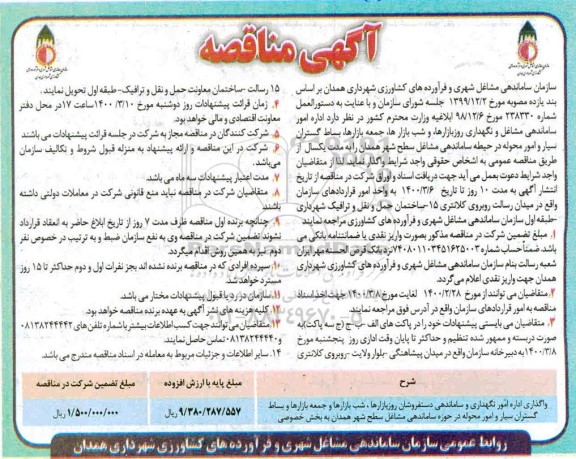 آگهی مناقصه
سازمان ساماندهی مشاغل شهری و فرآورده های کشاورزی شهرداری همدان بر اساس
بند یازده مصوبه مورخ ۱۳۹۹/۱۲/۲ جلسه شورای سازمان و با عنایت به دستورالعمل
شماره ۲۳۸۳۳۰ مورخ ۹۸/۱۲/۶ ابلاغیه وزارت محترم کشور در نظر دارد اداره امور
ساماندهی مشاغل و نگهداری روزبازارها، و شب بازار ها، جمعه بازارها، بساط گستران
سیار و امور محوله در حیطه ساماندهی مشاغل سطح شهر همدان را به مدت یکسال از
طریق مناقصه عمومی به اشخاص حقوقی واجد شرایط واگذار نماید. لذا از متقاضیان
واجد شرایط دعوت بعمل می آید جهت دریافت اسناد و اوراق شرکت در مناقصه از تاریخ
انتشار آگهی به مدت ۱۰ روز تا تاریخ ۱۴۰۰/۳/۶ به واحد امور قراردادهای سازمان
واقع در میدان رسالت روبروی کلانتری ۱۵-ساختمان حمل و نقل و ترافیک شهرداری
-طبقه اول سازمان ساماندهی مشاغل شهری و فرآورده های کشاورزی مراجعه نمایند.
۱. مبلغ تضمین شرکت در مناقصه مذکور بصورت واریز نقدی یا ضمانتنامه بانکی می
باشد. ضمناً حساب شماره نزد بانک قرض الحسنه مهر ایران
شعبه رسالت بنام سازمان ساماندهی مشاغل شهری و فرآورده های کشاورزی شهرداری
همدان جهت واریز نقدی اعلام می گردد.
۲. متقاضیان می توانند از مورخ ۱۴۰۰/۲/۲۸ لغایت مورخ ۱۴۰۰/۳/۸ جهت اخذ اسناد
مناقصه به امور قراردادهای سازمان واقع در آدرس فوق مراجعه نمایند.
۳. متقاضیان می بایستی پیشنهادات خود را در پاکت های الف -ب -ج (ج سه پاکت) به
صورت دربسته و ممهور شده تنظیم و حداکثر تا پایان وقت اداری روز پنجشنبه مورخ
۱۴۰۰/۳/۸ به دبیرخانه سازمان واقع در میدان پیشاهنگی -بلوار ولایت -روبروی کلانتری
۱۵ رسالت -ساختمان معاونت حمل و نقل و ترافیک- طبقه اول تحویل نمایند.
۴. زمان قرائت پیشنهادات روز دوشنبه مورخ ۱۴۰۰/۳/۱۰ ساعت ۱۷ در محل دفتر
معاونت اقتصادی و مالی خواهد بود.
۵. شرکت کنندگان در مناقصه مجاز به شرکت در جلسه قرائت پیشنهادات می باشند
۶. شرکت در این مناقصه و ارائه پیشنهاد به منزله قبول شروط و تکالیف سازمان
می باشد.
۷. مدت اعتبار پیشنهادات سه ماه می باشد.
۸. متقاضیان شرکت در مناقصه نباید منع قانونی شرکت در معاملات دولتی داشته
باشند
۹. چنانچه برنده اول مناقصه ظرف مدت ۷ روز از تاریخ ابلاغ حاضر به انعقاد قرارداد
نشوند تضمین شرکت در مناقصه وی به نفع سازمان ضبط و به ترتیب در خصوص نفر
دوم نیز به همین روش اقدام میگردد.
۱۰. سپرده افرادی که در مناقصه برنده نشده اند بجز نفرات اول و دوم حداکثر تا ۱۵ روز
مسترد خواهد شد.
۱۱. سازمان در رد یا قبول پیشنهادات مختار می باشد.
۱۲. کلیه هزینه های نشر آگهی به عهده برنده مناقصه خواهد بود.
۱۳. متقاضیان می توانند جهت کسب اطلاعات بیشتر با شماره تلفن های ۰۸۱۳۸۲۴۴۴۴۲
و ۰۸۱۳۸۲۴۴۴۴۰ تماس حاصل نمایند.
۱۴. سایر اطلاعات و جزئیات مربوط به معامله در اسناد مناقصه مندرج می باشد.
شرح
مبلغ پایه با ارزش افزوده
مبلغ تضمین شرکت در مناقصه
واگذاری اداره امور نگهداری و ساماندهی دستفروشان روزبازارها ، شب بازارها و جمعه بازارها و بساط
گستران سیار و امور محوله در حوزه ساماندهی مشاغل سطح شهر همدان به بخش خصوصی
۹/۳۸۰/۲۸۷/۵۵۷ ریال
۱/۵۰۰/۰۰۰/۰۰۰ ریال
روابط عمومی سازمان ساماندهی مشاغل شهری و فرآورده های کشاورزی شهرداری همدان